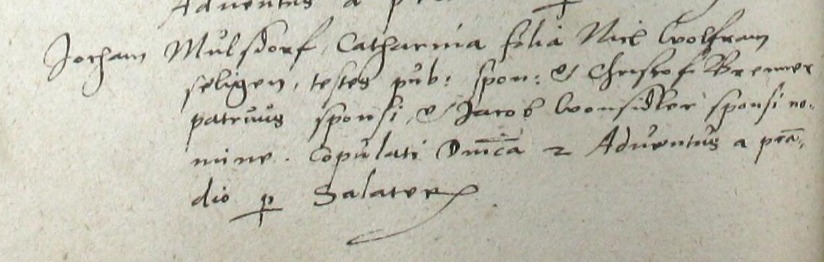 Adventus a
Jocham Mülsdorf, Catharina filia Nicl Wolfram
seligen, testes pub: spon: & Christof Brenner
patruus sponsi, & Jacob Wonsidler sponsi no,
mine. Copulati Dnica 2 Adventus a pran,
dio p Salater